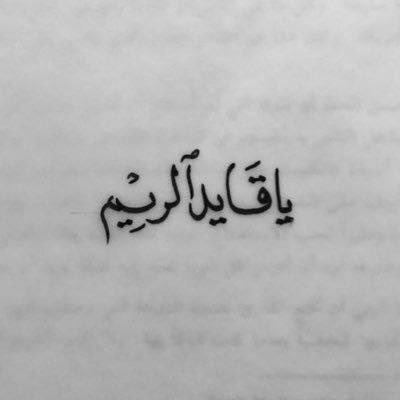 يا قَايد ٱلريِمْ